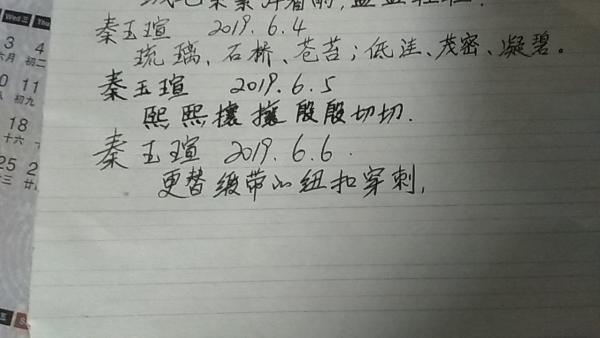 秦玉瑄 2019.6.4
琉璃、石桥、苍苔；低洼、茂密、凝碧。
秦玉瑄 2019.6.5
熙熙攘攘殷殷切切.
秦玉瑄 2019.6.6.
更替缎带的纽扣穿刺,
Wed 三 Thu
3 4
六月 初二
11
初九
18
十六
25 2